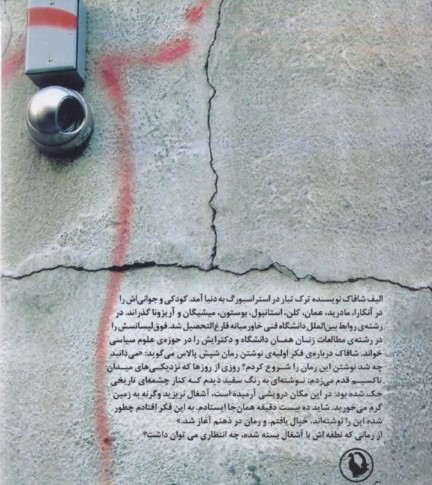 الیف شافاک نویسنده ترک تبار در استراسبورگ به دنیا آمد. کودکی و جوانی‌اش را
در آنکارا، مادرید، عمان، کلن، استانبول، بوستون، میشیگان و آریزونا گذراند. در
رشته‌ی روابط بین‌الملل دانشگاه فنی خاورمیانه فارغ‌التحصیل شد. فوق‌لیسانسش را
در رشته‌ی مطالعات زنان همان دانشگاه و دکترایش را در حوزه‌ی علوم سیاسی
خواند. شافاک درباره‌ی فکر اولیه‌ی نوشتن رمان شپش پالاس می‌گوید: «می‌دانید
چه شد نوشتن این رمان را شروع کردم؟ روزی از روزها که نزدیکی‌های میدان
تاکسیم قدم می‌زدم، نوشته‌ای به رنگ سفید دیدم که کنار چشمه‌ای تاریخی
حک شده بود: در این مکان درویشی آرمیده است، آشغال نریزید وگرنه به زمین
گرم می‌خورید. شاید ده بیست دقیقه همان‌جا ایستادم. به این فکر افتادم چطور
شده این را نوشته‌اند. خیال بافتم. و رمان در ذهنم آغاز شد.»
از رمانی که نطفه اش با آشغال بسته شده، چه انتظاری می توان داشت؟